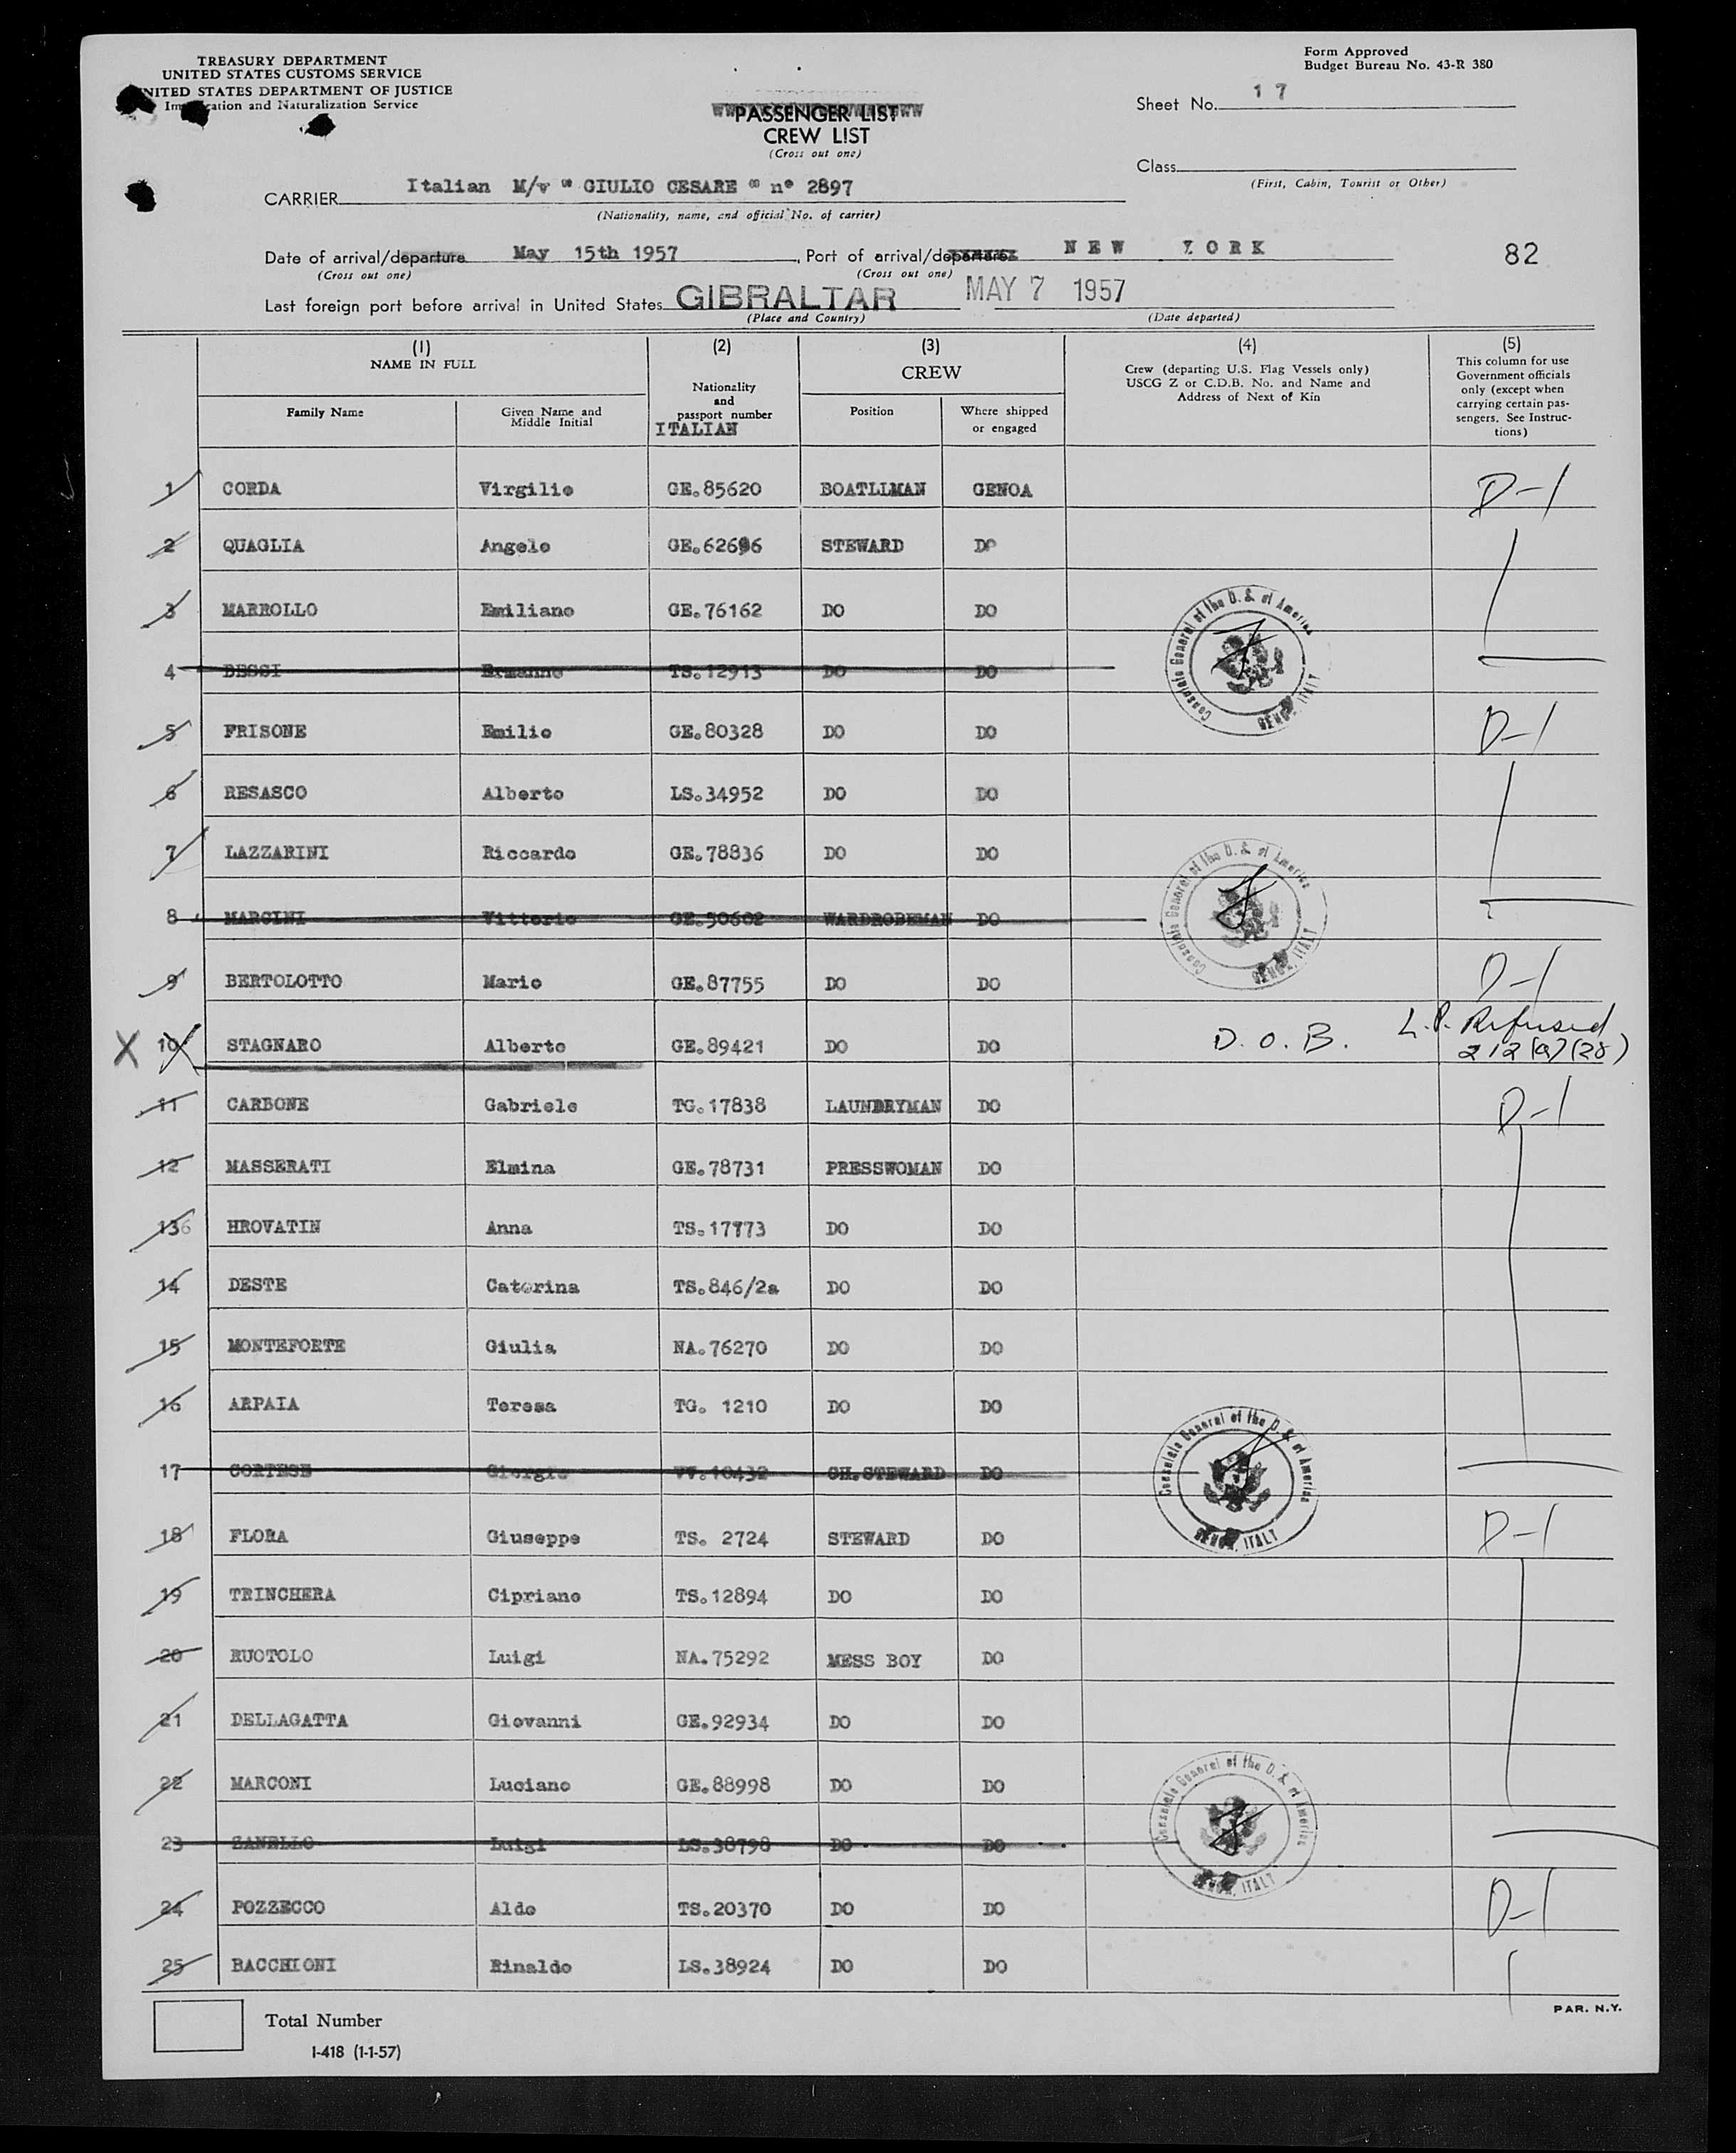 TREASURY DEPARTMENT
UNITED STATES CUSTOMS SERVICE
UNITED STATES DEPARTMENT OF JUSTICE
Immigration and Naturalization Service
Form Approved
Budget Bureau No. 43-R 380
PASSENGER LIST
CREW LIST
(Cross out one)
Sheet No. 17
Class
(First, Cabin, Tourist or Other)
CARRIER Italian M/v " GIULIO CESARE " n° 2897
(Nationality, name, and official No. of carrier)
Date of arrival/departure May 15th 1957, Port of arrival/departure NEW YORK
(Cross out one) (Cross out one)
82
Last foreign port before arrival in United States GIBRALTAR MAY 7 1957
(Place and Country) (Date departed)
(1) NAME IN FULL
Family Name
Given Name and Middle Initial
(2) Nationality and passport number
ITALIAN
(3) CREW
Position
Where shipped or engaged
(4) Crew (departing U.S. Flag Vessels only) USCG Z or C.D.B. No. and Name and Address of Next of Kin
(5) This column for use Government officials only (except when carrying certain passengers. See Instructions)
1 CORDA Virgilio GE.85620 BOATLLMAN GENOA D-1
2 QUAGLIA Angelo GE.62696 STEWARD DO
3 MARROLLO Emiliano GE.76162 DO DO
4 BESSI Ermanno TS.12913 DO DO
Consulate General of the U. S. of America GENOA, ITALY
5 FRISONE Emilio GE.80328 DO DO D-1
6 RESASCO Alberto LS.34952 DO DO
7 LAZZARINI Riccardo GE.78836 DO DO
8 MARCINI Vittorio GE.50602 WARDROBEMAN DO
Consulate General of the U. S. of America GENOA, ITALY
9 BERTOLOTTO Mario GE.87755 DO DO D-1
X 10 STAGNARO Alberto GE.89421 DO DO D.O.B. L.P. Refused
212(a)(28)
11 CARBONE Gabriele TG.17838 LAUNDRYMAN DO D-1
12 MASSERATI Elmina GE.78731 PRESSWOMAN DO
136 HROVATIN Anna TS.17773 DO DO
14 DESTE Caterina TS.846/2a DO DO
15 MONTEFORTE Giulia NA.76270 DO DO
16 ARPAIA Teresa TG. 1210 DO DO
17 CORTESE Giorgio VV.10432 CH.STEWARD DO
Consulate General of the U. S. of America GENOA, ITALY
18 FLORA Giuseppe TS. 2724 STEWARD DO D-1
19 TRINCHERA Cipriano TS.12894 DO DO
20 RUOTOLO Luigi NA.75292 MESS BOY DO
21 DELLAGATTA Giovanni GE.92934 DO DO
22 MARCONI Luciano GE.88998 DO DO
23 ZANELLO Luigi LS.38798 DO DO
Consulate General of the U. S. of America GENOA, ITALY
24 POZZECCO Aldo TS.20370 DO DO D-1
25 BACCHIONI Rinaldo LS.38924 DO DO
Total Number
I-418 (1-1-57)
PAR. N.Y.